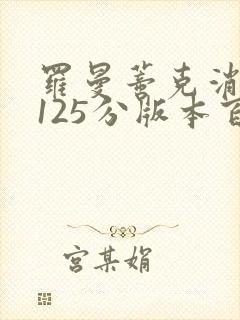 羅曼蒂克消
125分版本百
宮某娟